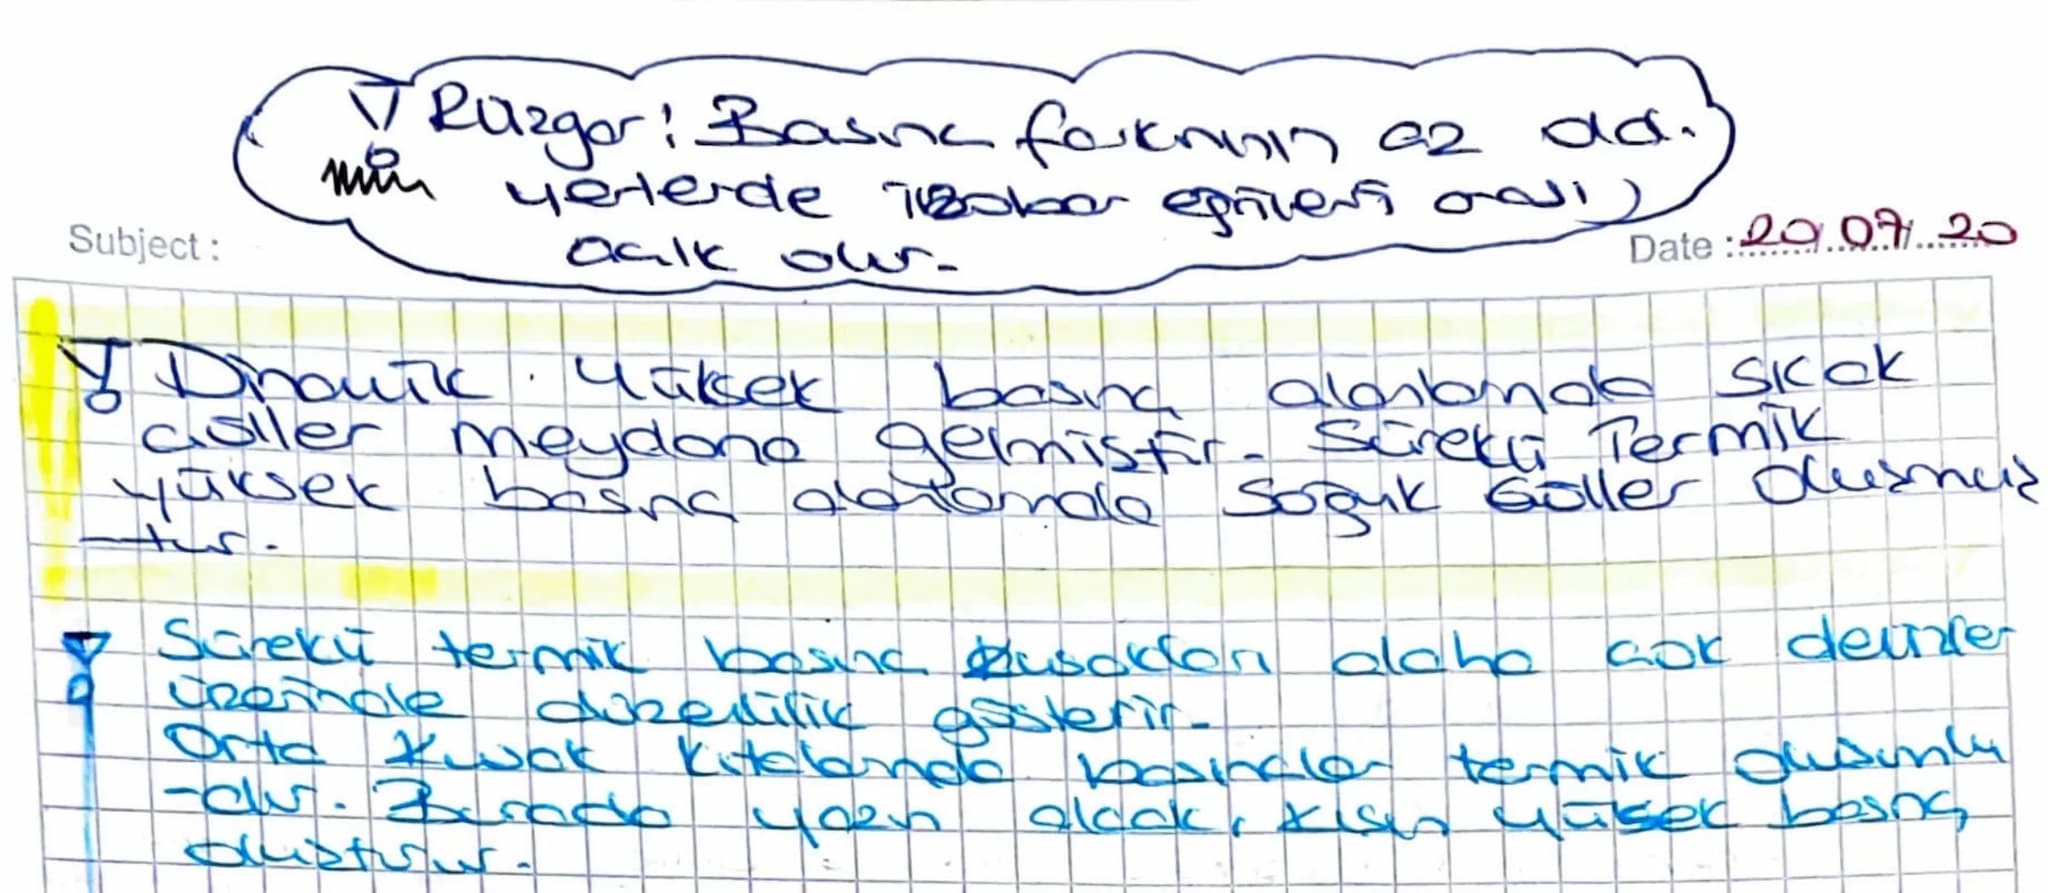 Rüzgar: Basınc farkının az old.
yerlerde izobar eğrileri arası
acık olur.
Subject :
Date : 20.07.20
Dinamik Yüksek basınç alanlarında sıcak
cöller meydana gelmiştir. Sürekli Termik
yüksek basınç alanlarında Soğuk Göller oluşmuş
-tur.
Sürekli termik basınc kuşakları daha cok denizler
üzerinde düzenlilik gösterir.
Orta Kuşak Kıtalarında basınclar termik oluşumlu
-dur. Burada yazın alcak, kışın yüksek basınç
oluşturur.